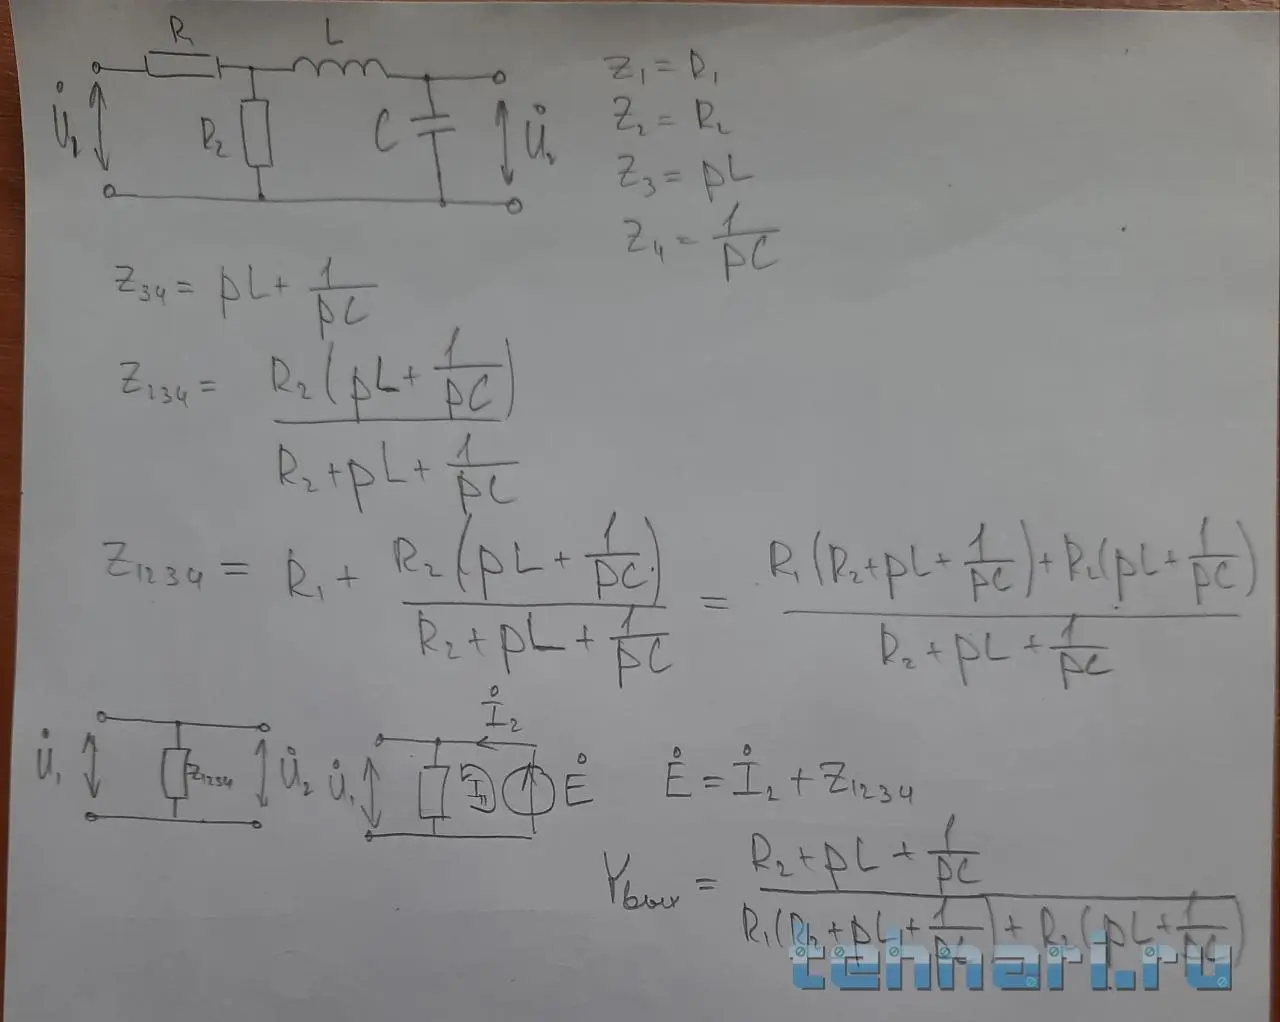 R₁ L
U̇₂ R₂ C U̇₂
Z₁ = R₁
Z₂ = R₂
Z₃ = pL
Z₄ = 1/pC
Z₃₄ = pL + 1/pC
Z₂₃₄ = R₂(pL + 1/pC) / R₂ + pL + 1/pC
Z₁₂₃₄ = R₁ + R₂(pL + 1/pC) / R₂ + pL + 1/pC = R₁(R₂ + pL + 1/pC) + R₂(pL + 1/pC) / R₂ + pL + 1/pC
İ₂
U̇₁ Z₁₂₃₄ U̇₂ U̇₁ Ė
Ė = İ₂ + Z₁₂₃₄
Yвых = R₂ + pL + 1/pC / R₁(R₂ + pL + 1/pC) + R₂(pL + 1/pC)
tehnari.ru